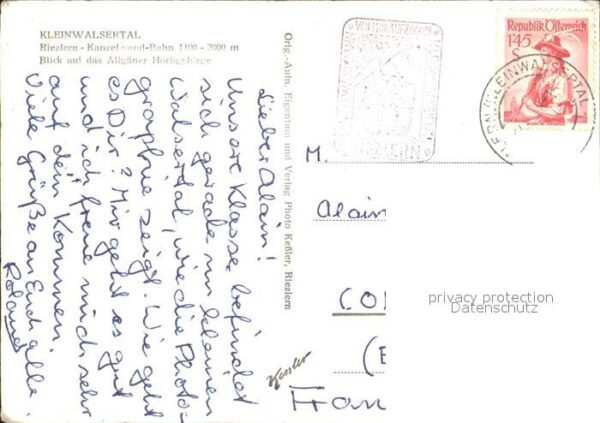 KLEINWALSERTAL
Riezlern - Kanzelwand-Bahn 1100 - 2000 m
Blick auf das Allgäuer Hochgebirge
Lieber Alain!
Unsere Klasse befindet
sich gerade im kleinen
Walsertal, wie die Photo-
graphie zeigt. Wie geht
es Dir? Mir geht es gut
und ich freue mich sehr
auf dein Kommen.
Viele Grüße an Euch alle.
Roland
Orig.-Aufn. Eigentum und Verlag Photo Keßler, Riezlern
Kessler
RIEZLERN
Republik Österreich
1'45
S
KLEINWALSERTAL
M.
Alain
CO
(
Fran
privacy protection
Datenschutz